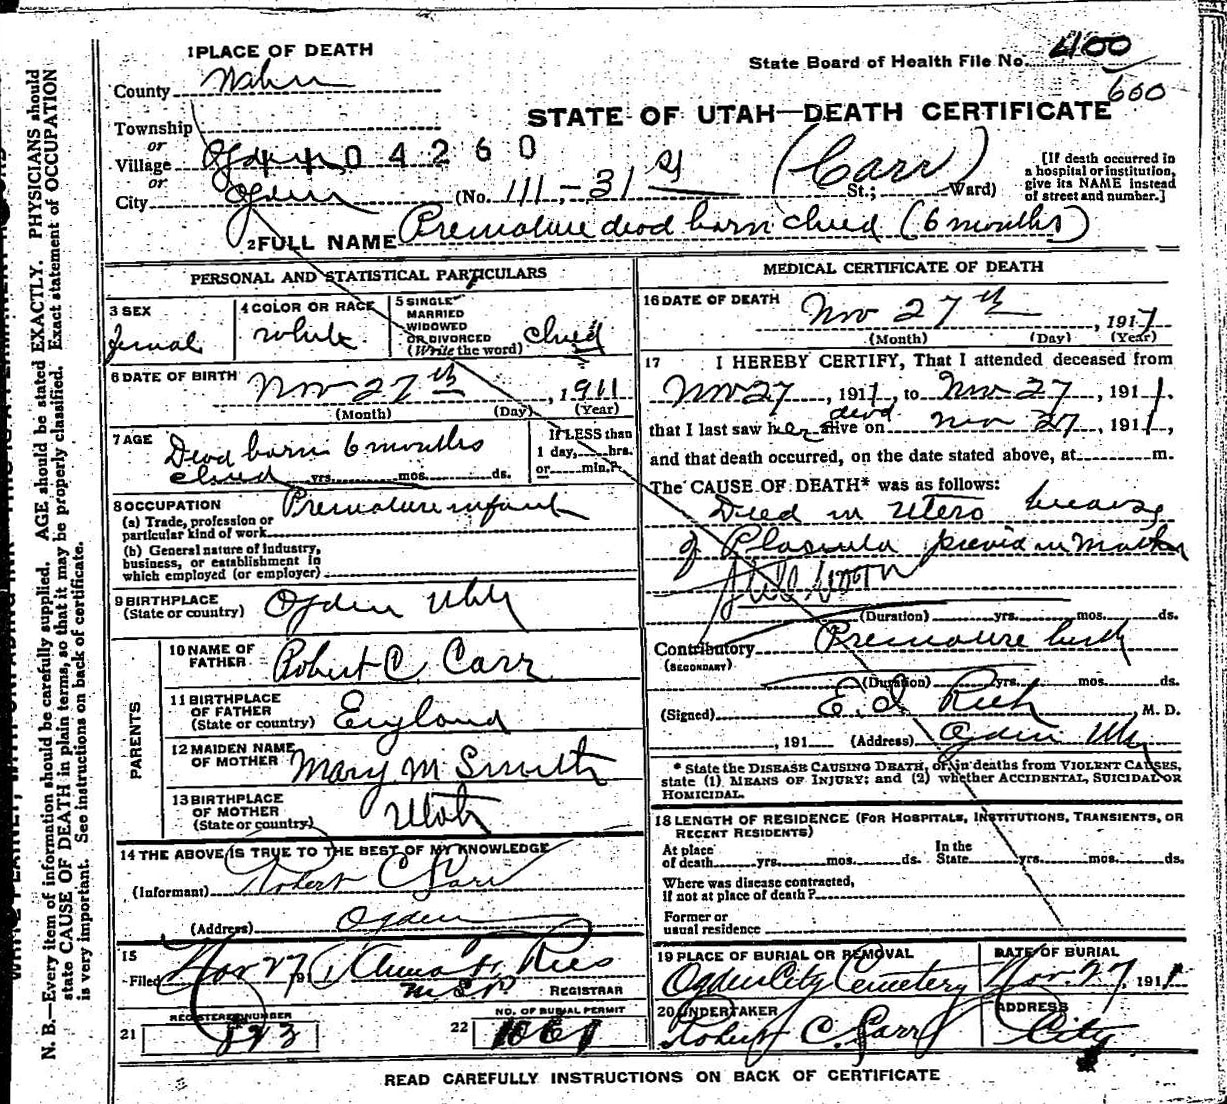 1 PLACE OF DEATH
State Board of Health File No. 400
600
County Weber
STATE OF UTAH—DEATH CERTIFICATE
Township
or
Village 4404260
or
City Ogden (No. 111 - 31st St.; Ward) (Carr)
[If death occurred in a hospital or institution, give its NAME instead of street and number.]
2 FULL NAME Premature dead born child (6 months)
PERSONAL AND STATISTICAL PARTICULARS
3 SEX
Female
4 COLOR OR RACE
White
5 SINGLE
MARRIED
WIDOWED
OR DIVORCED
(Write the word) child
6 DATE OF BIRTH Nov 27th, 1911
(Month) (Day) (Year)
7 AGE Dead born 6 months
child yrs. mos. ds.
If LESS than
1 day, hrs.
or min.?
8 OCCUPATION Premature infant
(a) Trade, profession or
particular kind of work
(b) General nature of industry,
business, or establishment in
which employed (or employer)
9 BIRTHPLACE
(State or country) Ogden Utah
PARENTS
10 NAME OF
FATHER Robert C. Carr
11 BIRTHPLACE
OF FATHER
(State or country) England
12 MAIDEN NAME
OF MOTHER Mary M Smith
13 BIRTHPLACE
OF MOTHER
(State or country) Utah
14 THE ABOVE IS TRUE TO THE BEST OF MY KNOWLEDGE
(Informant) Robert C Carr
(Address) Ogden
15
Filed Nov 27 191
REGISTRAR
21 REGISTERED NUMBER
22 NO. OF BURIAL PERMIT
1061
MEDICAL CERTIFICATE OF DEATH
16 DATE OF DEATH
Nov 27th, 1911
(Month) (Day) (Year)
17 I HEREBY CERTIFY, That I attended deceased from
Nov 27, 1911, to Nov 27, 1911.
dead
that I last saw her alive on Nov 27, 1911,
and that death occurred, on the date stated above, at m.
The CAUSE OF DEATH* was as follows:
Died in utero because
of Placenta previa in Mother
Stillborn
(Duration) yrs. mos. ds.
Contributory Premature birth
(SECONDARY)
(Duration) yrs. mos. ds.
(Signed) E. I. Rich, M. D.
, 191 (Address) Ogden Utah
* State the DISEASE CAUSING DEATH, or, in deaths from VIOLENT CAUSES,
state (1) MEANS OF INJURY; and (2) whether ACCIDENTAL, SUICIDAL OR
HOMICIDAL.
18 LENGTH OF RESIDENCE (FOR HOSPITALS, INSTITUTIONS, TRANSIENTS, OR
RECENT RESIDENTS)
At place
of death yrs. mos. ds.
In the
State yrs. mos. ds.
Where was disease contracted,
if not at place of death?
Former or
usual residence
19 PLACE OF BURIAL OR REMOVAL
Ogden City Cemetery
DATE OF BURIAL
Nov. 27, 1911
20 UNDERTAKER
Robert C. Carr
ADDRESS
City
READ CAREFULLY INSTRUCTIONS ON BACK OF CERTIFICATE
N. B.—Every item of information should be carefully supplied. AGE should be stated EXACTLY. PHYSICIANS should
state CAUSE OF DEATH in plain terms, so that it may be properly classified. Exact statement of OCCUPATION
is very important. See instructions on back of certificate.